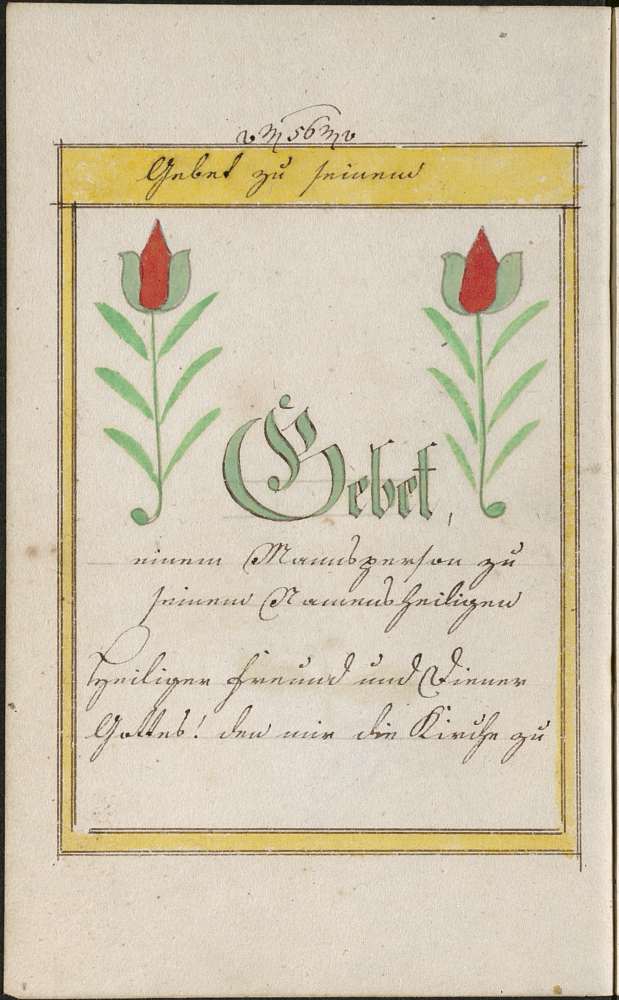 56
Gebet zu seinem
Gebet,
einem Mannsperson zu
seinem Namensheiligen
Heiliger Freund und Diener
Gottes! den mir die Kirche zu